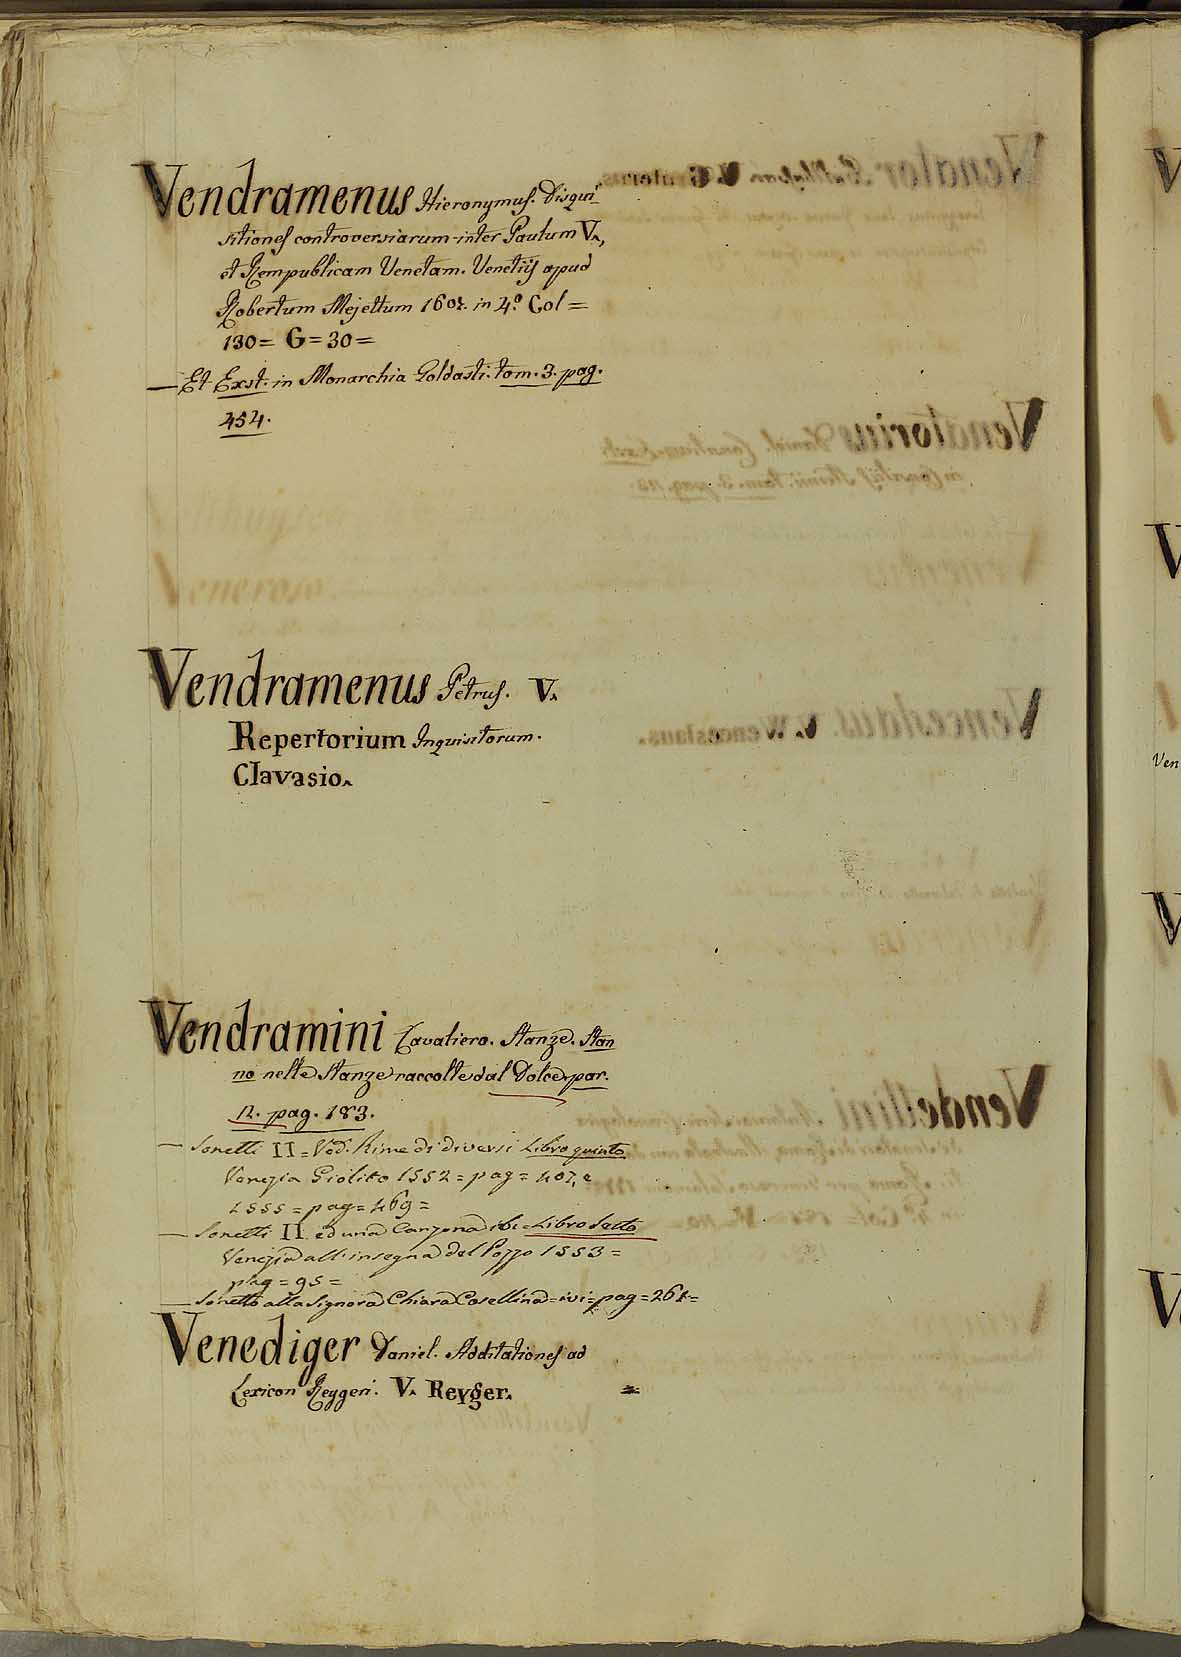 Vendramenus Hieronymus. Disqui
sitiones controversiarum inter Paulum V.,
et Rempublicam Venetam. Venetijs apud
Robertum Mejettum 1607. in 4.º Col=
130= G=30=
— Et Exst. in Monarchia Goldasti. tom. 3. pag.
454.
Vendramenus Petrus. V.
Repertorium Inquisitorum.
Clavasio.
Vendramini Cavaliero. Stanze. Stan
no nelle Stanze raccolte dal Dolce. par.
2. pag. 183.
— Sonetti II = Ved. Rime di diversi Libro quinto
Venezia Giolito 1552 = pag = 407, e
1555 = pag = 469 =
— Sonetti II. ed una Canzona ibi = Libro Sesto
Venezia all' insegna del Pozzo 1553 =
pag = 95 =
— Sonetto alla Signora Chiara Casellina = ivi = pag = 261 =
Venediger Daniel. Additationes ad
Lexicon Reygeri. V. Reyger.
Ven